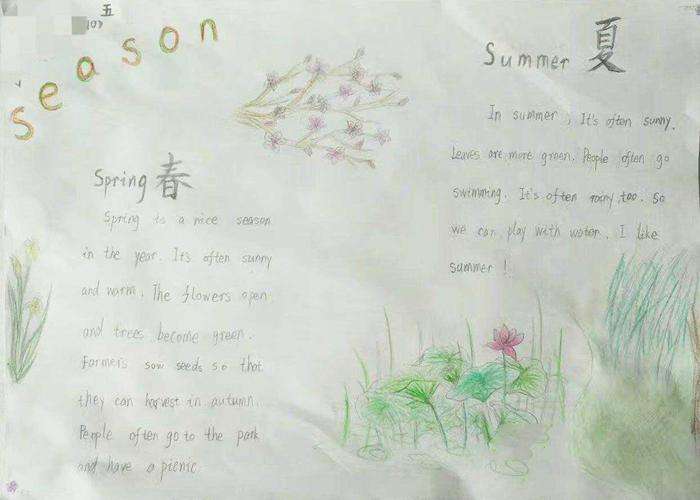 五
season
Spring 春
Spring is a nice season
in the year. It's often sunny
and warm. The flowers open
and trees become green.
Farmers sow seeds so that
they can harvest in autumn.
People often go to the park
and have a picnic
Summer 夏
In summer, It's often sunny.
Leaves are more green. People often go
swimming. It's often rainy, too. So
we can play with water. I like
summer!